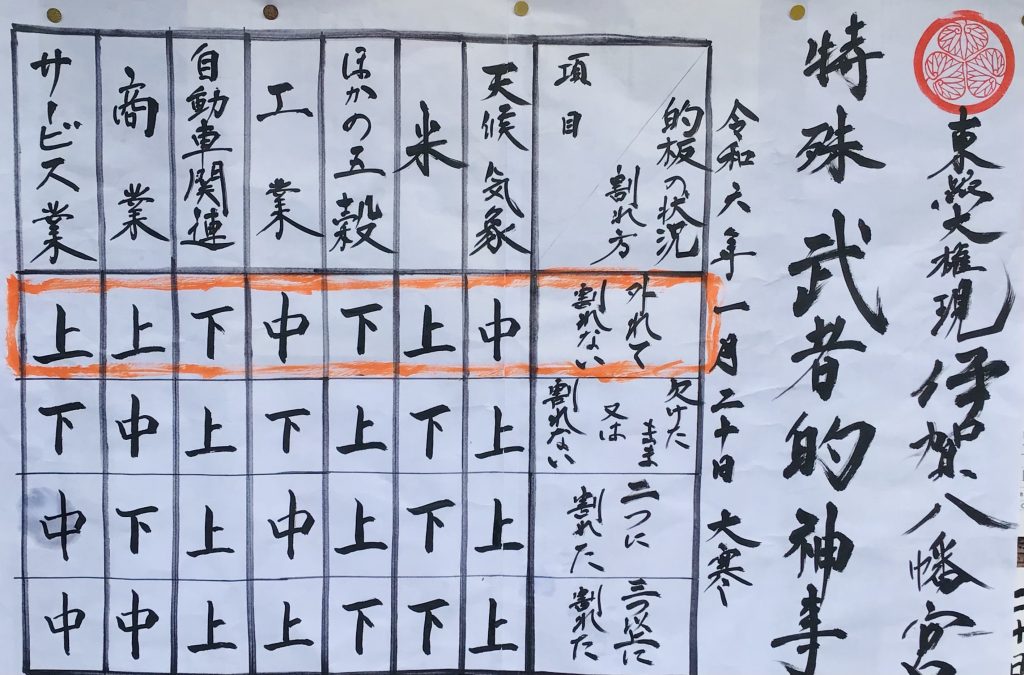 東照大権現 伊賀八幡宮
特殊 武者的神事
令和六年 一月 二十日 大寒
的板の状況
割れ方
項目
天候 気象
米
ほかの五穀
工業
自動車関連
商業
サービス業
外れて
割れない
中
上
下
中
下
上
上
欠けた
まま
又は
割れない
上
下
上
下
上
中
下
二つに
割れた
上
下
上
中
上
下
中
三つ以上に
割れた
上
下
下
上
上
中
中